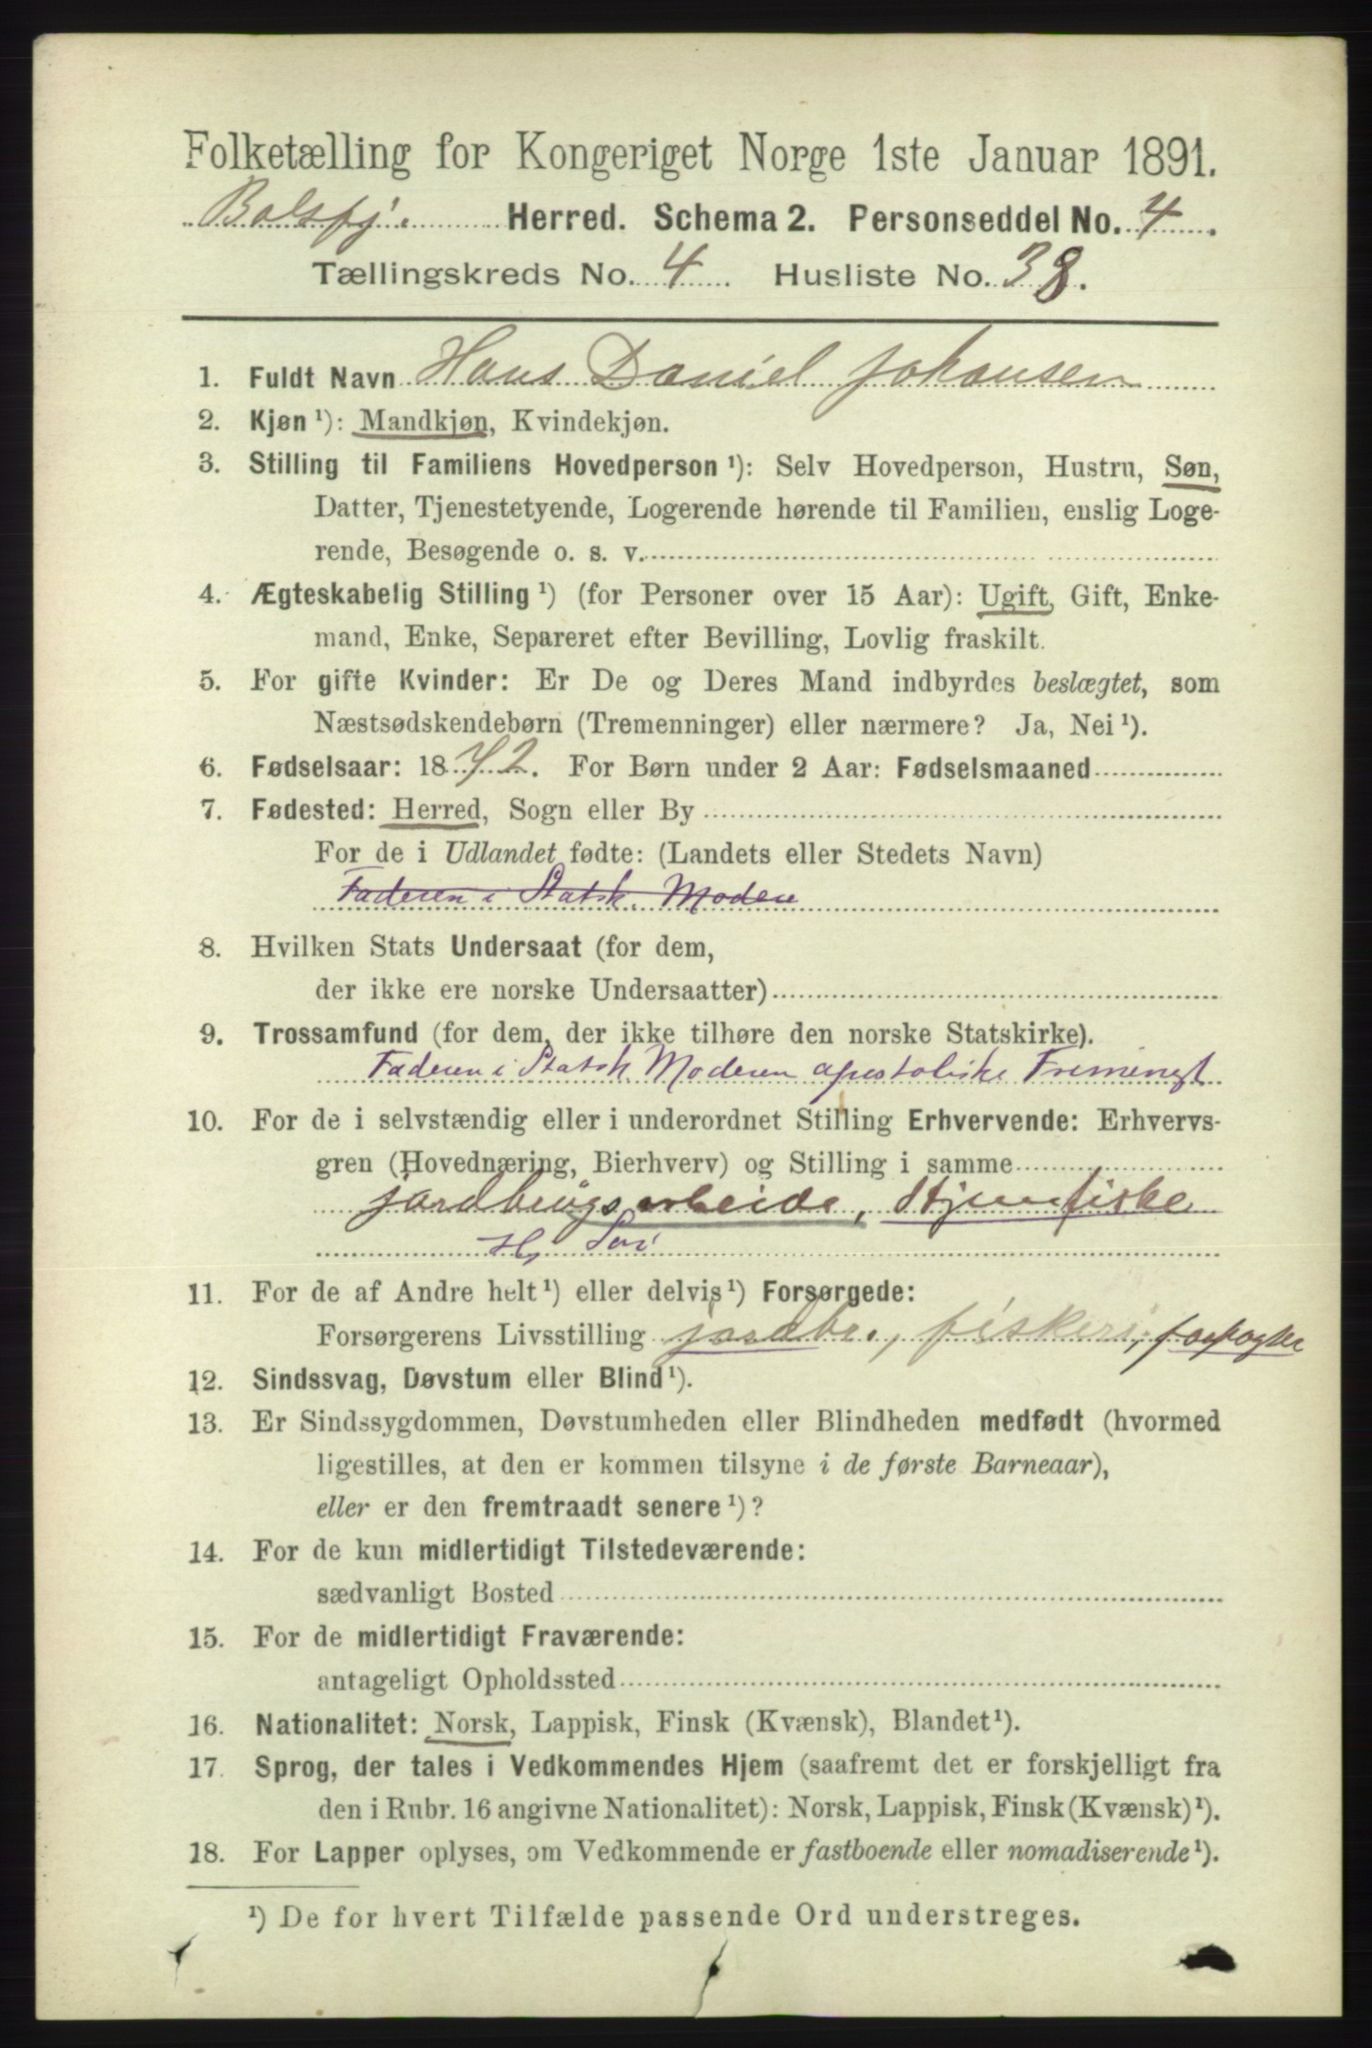 Folketælling for Kongeriget Norge 1ste Januar 1891.
Balsfj. Herred. Schema 2. Personseddel No. 4.
Tællingskreds No. 4. Husliste No. 38.
1. Fuldt Navn Hans Daniel Johansen
2. Kjøn ¹): Mandkjøn, Kvindekjøn.
3. Stilling til Familiens Hovedperson ¹): Selv Hovedperson, Hustru, Søn,
Datter, Tjenestetyende, Logerende hørende til Familien, enslig Loge-
rende, Besøgende o. s. v.
4. Ægteskabelig Stilling ¹) (for Personer over 15 Aar): Ugift, Gift, Enke-
mand, Enke, Separeret efter Bevilling, Lovlig fraskilt.
5. For gifte Kvinder: Er De og Deres Mand indbyrdes beslægtet, som
Næstsødskendebørn (Tremenninger) eller nærmere? Ja, Nei ¹).
6. Fødselsaar: 1872. For Børn under 2 Aar: Fødselsmaaned
7. Fødested: Herred, Sogn eller By
For de i Udlandet fødte: (Landets eller Stedets Navn)
Faderen i Statsk. Moderen
8. Hvilken Stats Undersaat (for dem,
der ikke ere norske Undersaatter)
9. Trossamfund (for dem, der ikke tilhøre den norske Statskirke).
Faderen i Statsk Moderen apostoliske Frimenigt
10. For de i selvstændig eller i underordnet Stilling Erhvervende: Erhvervs-
gren (Hovednæring, Bierhverv) og Stilling i samme
jordbrugsarbeide, Hjemfiske
11. For de af Andre helt ¹) eller delvis ¹) Forsørgede:
Forsørgerens Livsstilling jordbr., fiskeri,
12. Sindssvag, Døvstum eller Blind ¹).
13. Er Sindssygdommen, Døvstumheden eller Blindheden medfødt (hvormed
ligestilles, at den er kommen tilsyne i de første Barneaar),
eller er den fremtraadt senere ¹)?
14. For de kun midlertidigt Tilstedeværende:
sædvanligt Bosted
15. For de midlertidigt Fraværende:
antageligt Opholdssted
16. Nationalitet: Norsk, Lappisk, Finsk (Kvænsk), Blandet ¹).
17. Sprog, der tales i Vedkommendes Hjem (saafremt det er forskjelligt fra
den i Rubr. 16 angivne Nationalitet): Norsk, Lappisk, Finsk (Kvænsk) ¹).
18. For Lapper oplyses, om Vedkommende er fastboende eller nomadiserende ¹).
¹) De for hvert Tilfælde passende Ord understreges.